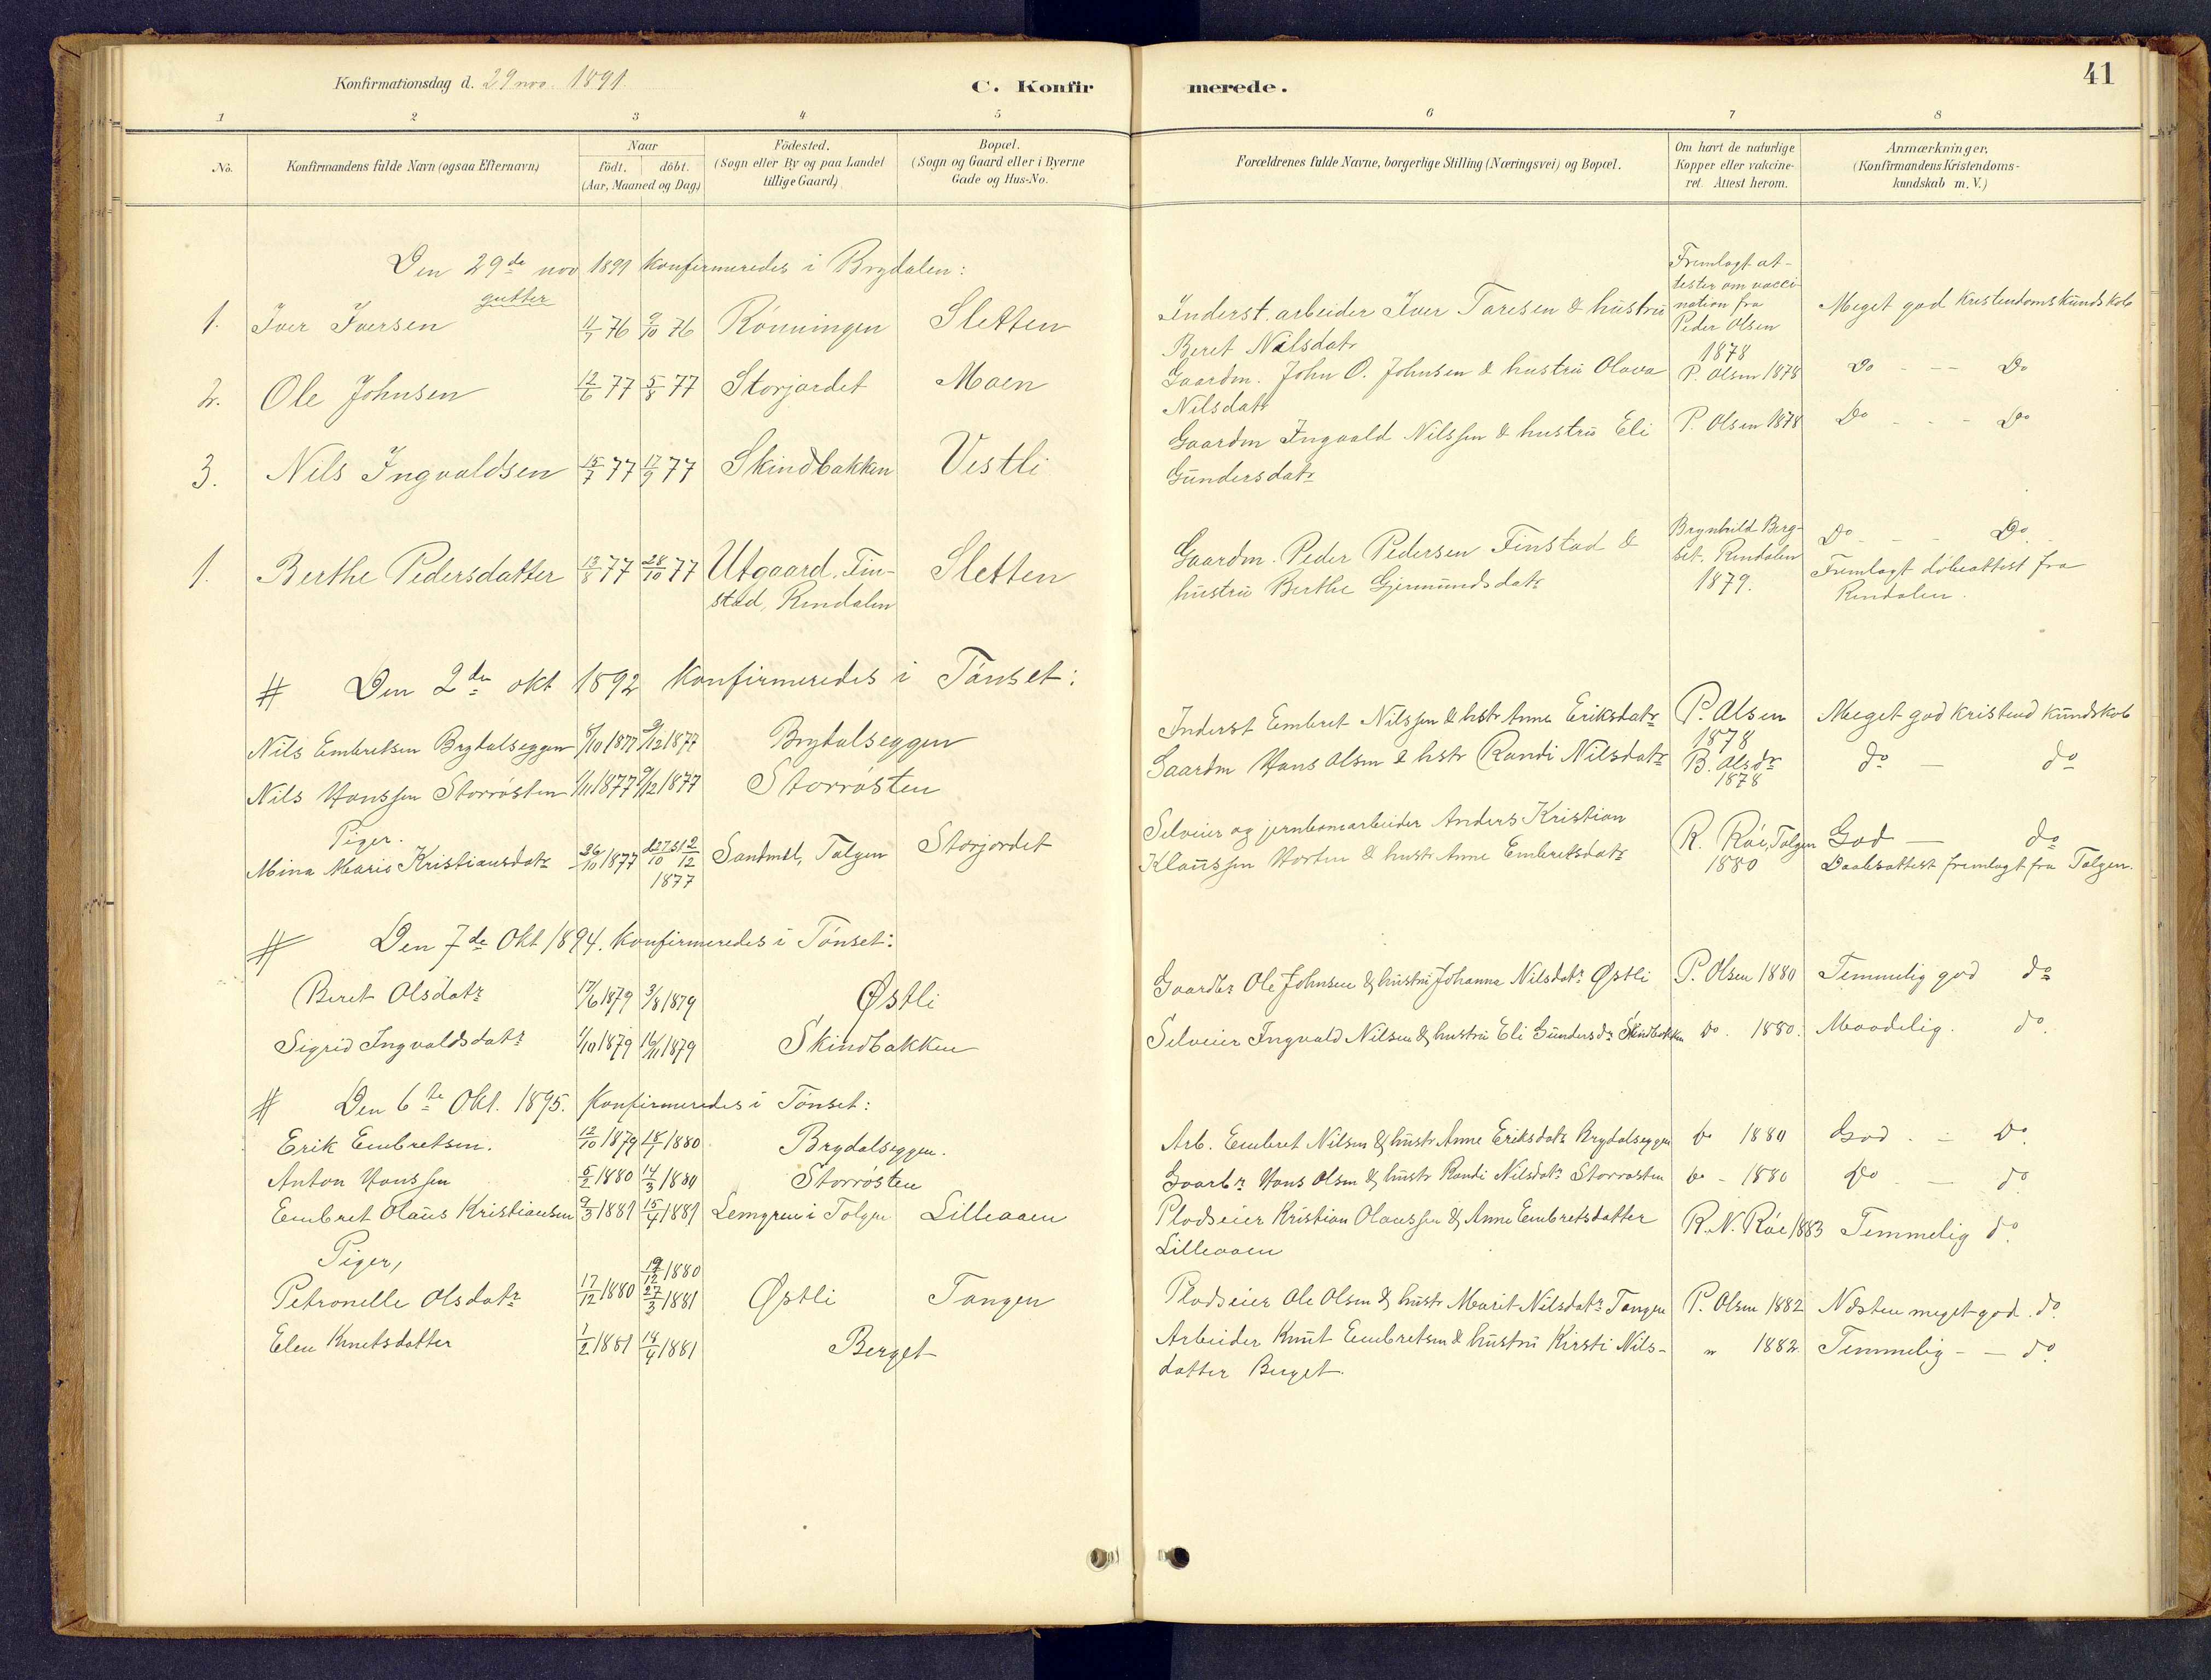 Konfirmationsdag d. 29 nov. 1891.
C. Konfir merede.
41
1 2 3 4 5 6 7 8
No.
Konfirmandens fulde Navn (ogsaa Efternavn)
Naar
födt. döbt.
(Aar, Maaned og Dag)
Födested.
(Sogn eller By og paa Landet
tillige Gaard).
Bopæl.
(Sogn og Gaard eller i Byerne
Gade og Hus-No.
Forældrenes fulde Navne, borgerlige Stilling (Næringsvei) og Bopæl.
Om havt de naturlige
Kopper eller vakcine-
ret. Attest herom.
Anmærkninger,
(Konfirmandens Kristendoms-
kundskab m. V.)
Den 29de nov 1891 konfirmeredes i Brydalen:
gutter
Fremlagt at-
tester om vacci-
nation fra
Peder Olsen
1878
1. Iver Iversen 76 76 Rönningen Sletten Inderst. arbeider Iver Taresen & hustru Meget god kristendomskundskab
Beret Nilsdatr
2. Ole Johnsen 12/6 77 5/8 77 Storjordet Moen Gaardm. John O. Johnsen & hustru Olava P. Olsen 1878 Do - - Do
Nilsdatr
3. Nils Ingvaldsen 15/7 77 17/9 77 Skindbakken Vestli Gaardm Ingvald Nilssen & hustru Eli P. Olsen 1878 Do - - Do
Gundersdatr
1. Berthe Pedersdatter 13/8 77 28/10 77 Utgaard. Fin- Sletten Gaardm. Peder Pedersen Finstad & Brynhild Berg- Do - - Do
stad, Rendalen hustru Berthe Gjermundsdatr set. Rendalen Fremlagt döbeattest fra
1879. Rendalen.
# Den 2den okt 1892 konfirmeredes i Tönset:
Nils Embretsen Brydalseggen 8/10 1877 9/12 1877 Brydalseggen Inderst Embret Nilssen & hstr Anne Eriksdatr P. Olsen 1878 Meget god kristend kundskab
Nils Hanssen Storrösten 1/11 1877 9/12 1877 Storrösten Gaardm Hans Olsen & hstr Randi Nilsdatr B. Olsdr 1878 do - do
Piger.
Mina Marie Kristiansdatr 26/10 1877 12/12 1877 Sandmel, Tolgen Storjordet Selveier og jernbanearbeider Anders Kristian R. Röe, Tolgen God - do
Klaussen Horten & hustr Anne Embretsdatr 1880 Daabsattest fremlagt fra Tolgen.
# Den 7de Okt 1894. Konfirmeredes i Tönset:
Beret Olsdatr 17/6 1879 3/8 1879 Østli Gaardbr Ole Johnsen & hustru Johanna Nilsdatr Østli P. Olsen 1880 Temmelig god do
Sigrid Ingvaldsdatr 1/10 1879 16/11 1879 Skindbakken Selveier Ingvald Nilsen & hustru Eli Gundersdr Skindbakken do. 1880. Maadelig. do.
# Den 6te Okt. 1895. Konfirmeredes i Tönset:
Erik Embretsen. 12/10 1879 18/1 1880 Brydalseggen. Arb. Embret Nilsen & hustr Anne Eriksdatr Brydalseggen do 1880 God. - Do.
Anton Hanssen 5/2 1880 14/3 1880 Storrösten Gaarbr Hans Olsen & hustr Randi Nilsdatr Storrösten do - 1880 Do - do
Embret Olaus Kristiansen 9/3 1881 15/4 1881 Lemgren i Tolgen Lilleaaen Plodseier Kristian Olaussen & Anne Embretsdatter R. N. Röe 1883 Temmelig do.
Lilleaaen
Piger,
Petronelle Olsdatr 17/12 1880 19/12 1880 27/3 1881 Østli Tangen Plodseier Ole Olsen & hustr Marit Nilsdatr Tangen P. Olsen 1882 Næsten meget god. do.
Elen Knutsdatter 1/2 1881 14/4 1881 Berget Arbeider Knut Embretsen & hustru Kirsti Nils- " 1882. Temmelig - - do.
datter Berget.